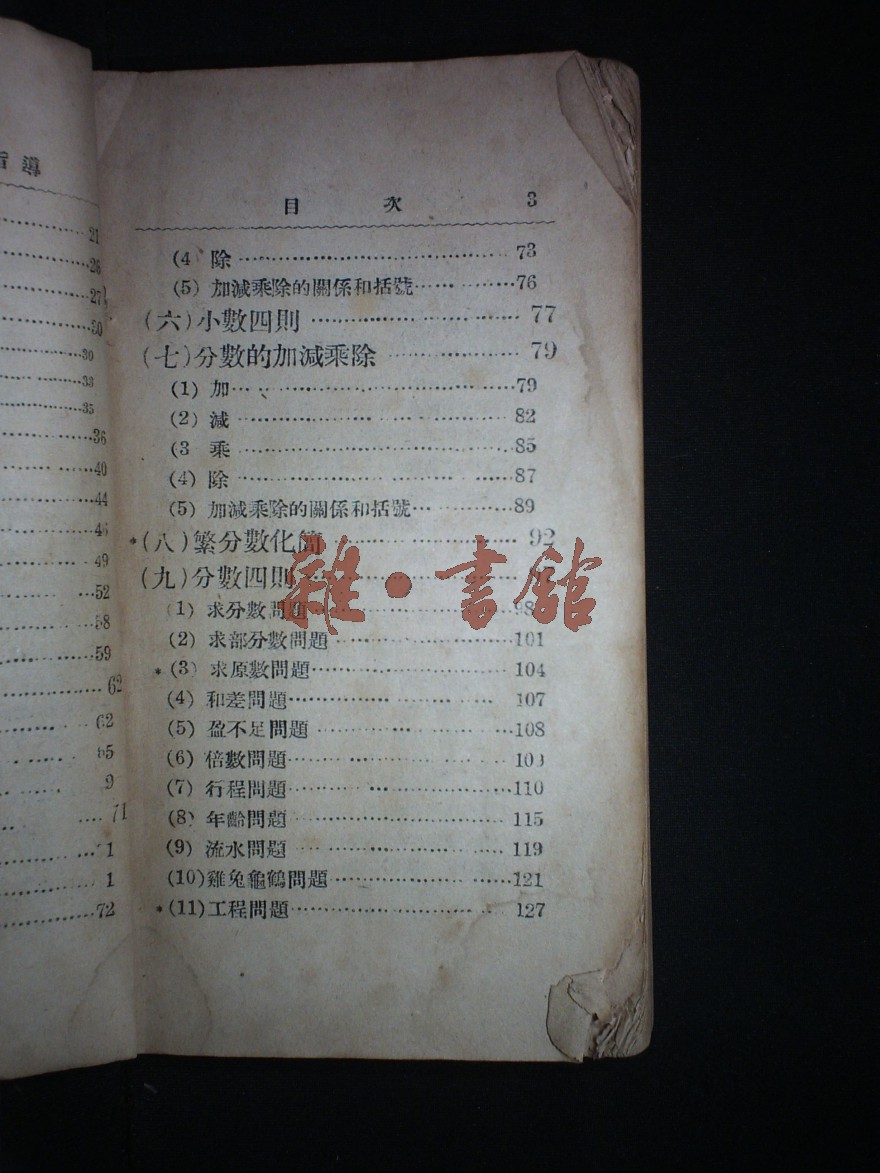 導
21
26
27
30
30
33
35
36
40
44
46
49
52
58
59
62
62
65
9
71
1
1
72
目 次 3
(4 除 73
(5) 加減乘除的關係和括號 76
(六)小數四則 77
(七)分數的加減乘除 79
(1) 加 79
(2) 減 82
(3 乘 85
(4) 除 87
(5) 加減乘除的關係和括號 89
*(八)繁分數化簡 92
(九)分數四則
(1) 求分數問題 98
(2) 求部分數問題 101
*(3) 求原數問題 104
(4) 和差問題 107
(5) 盈不足問題 108
(6) 倍數問題 109
(7) 行程問題 110
(8) 年齡問題 115
(9) 流水問題 119
(10)雞兔龜鶴問題 121
*(11)工程問題 127
雜·書館